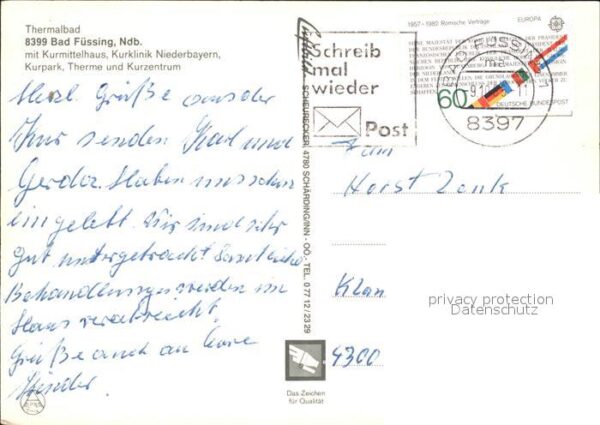 Thermalbad
8399 Bad Füssing, Ndb.
mit Kurmittelhaus, Kurklinik Niederbayern,
Kurpark, Therme und Kurzentrum
Herzl. Grüße aus der
Kur senden Karl und
Gerda. Haben uns schon
eingelebt. Wir sind sehr
gut untergebracht. Sämtliche
Behandlungen werden im
Haus verabreicht.
Grüße auch an Eure
Kinder.
SCHEURECKER, 4780 SCHÄRDING/INN - OÖ - TEL. 0 77 12 / 23 29
Schreib
mal
wieder
Post
1957-1982 Römische Verträge
EUROPA
60
DEUTSCHE BUNDESPOST
BAD FÜSSING 1
8397
Horst Zenk
4300
Das Zeichen
für Qualität
privacy protection
Datenschutz